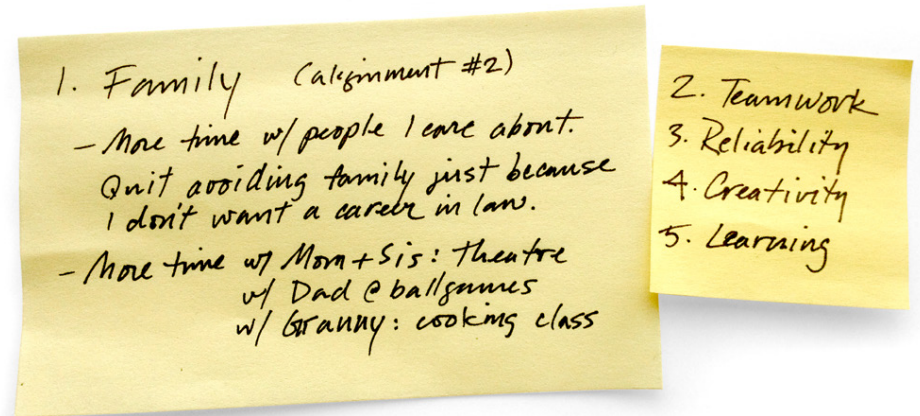 1. Family (alignment #2)
- More time w/ people I care about.
Quit avoiding family just because
I don't want a career in law.
- More time w/ Mom + Sis: Theatre
w/ Dad @ ballgames
w/ Granny: cooking class
2. Teamwork
3. Reliability
4. Creativity
5. Learning